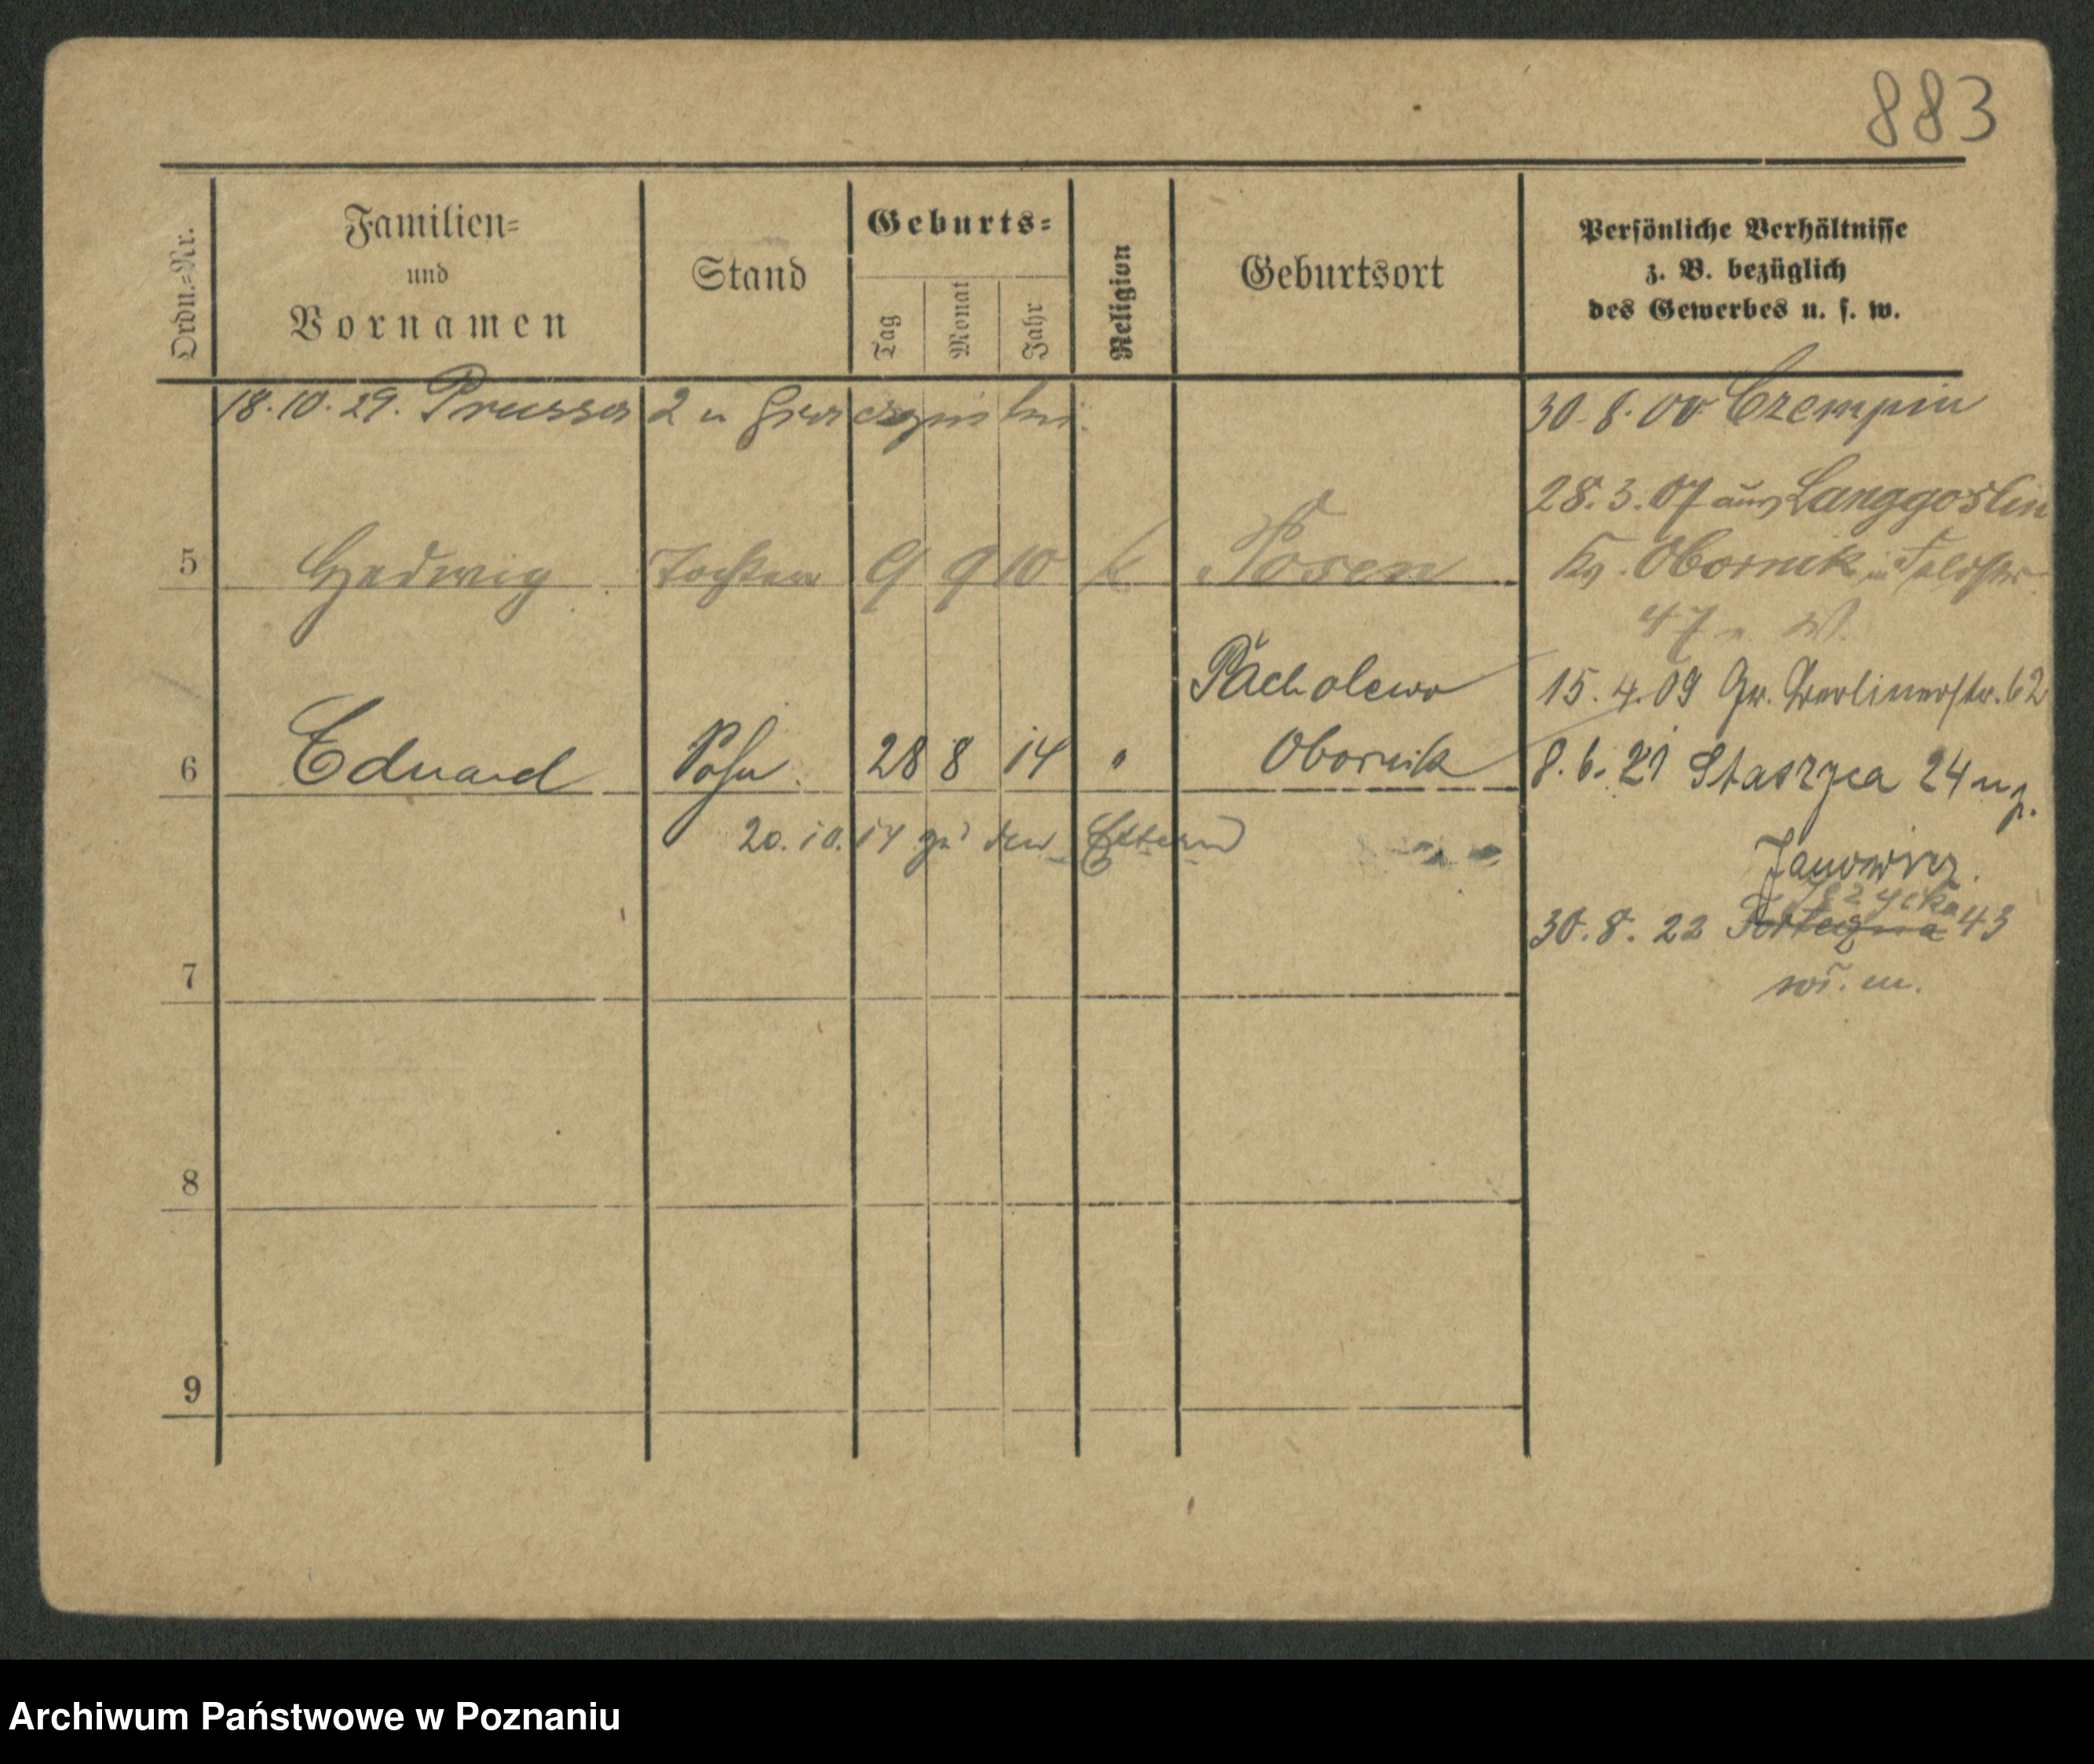 883
Ordn.=Nr.
Familien=
und
Vornamen
Stand
Geburts=
Tag
Monat
Jahr
Religion
Geburtsort
Persönliche Verhältnisse
z. B. bezüglich
des Gewerbes u. s. w.
18.10.29. Prussa 2 u
30.8.00 Czempin
28.3.07 aus Langgoslin
5 Hedwig Tochter 9 9 10 k Posen
Kr. Obornik in Feldstr.
47
Pacholewo
15.4.09 Gr. Berlinerstr. 62
6 Eduard Sohn 28 8 14 " Obornik
8.6.21 Staszyca 24 u p.
20.10.14 zu den Eltern
Janowicz.
Jeżycka
30.8.22 43
w. m.
7
8
9
Archiwum Państwowe w Poznaniu